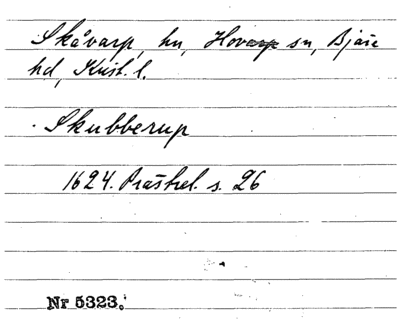 Skåvarp, hn, Hovarp sn, Bjäre
hd, Krist. l.
Skubberup
1624. Prästrel. s. 26
Nr 5323.